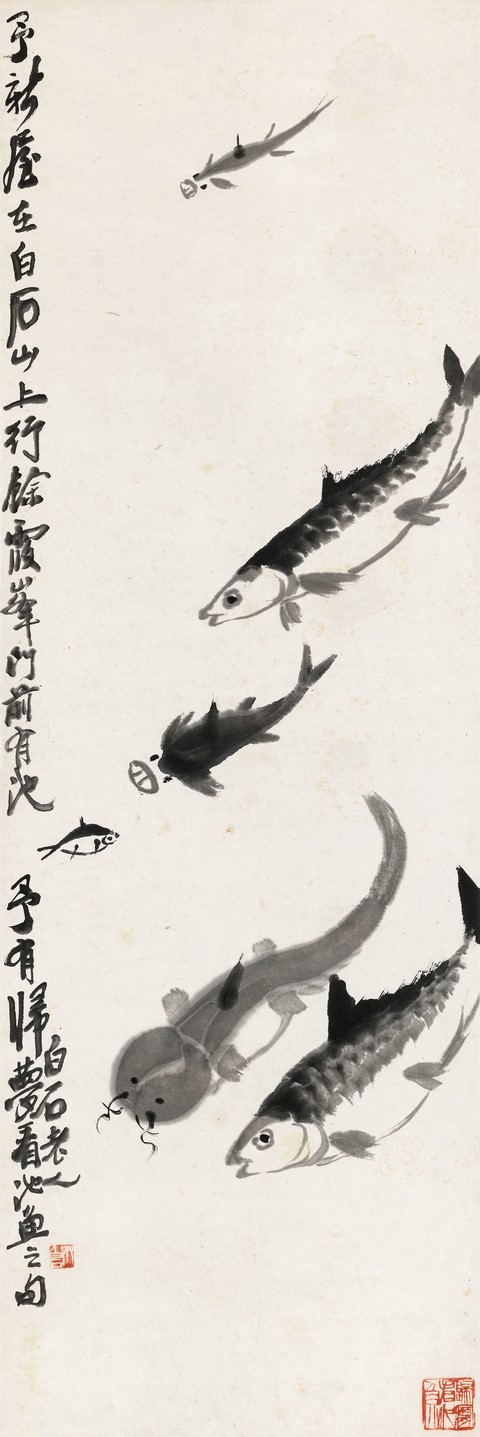 予新居在白石山上行餘霞峯門前有池
予有歸夢看池魚之句
白石老人